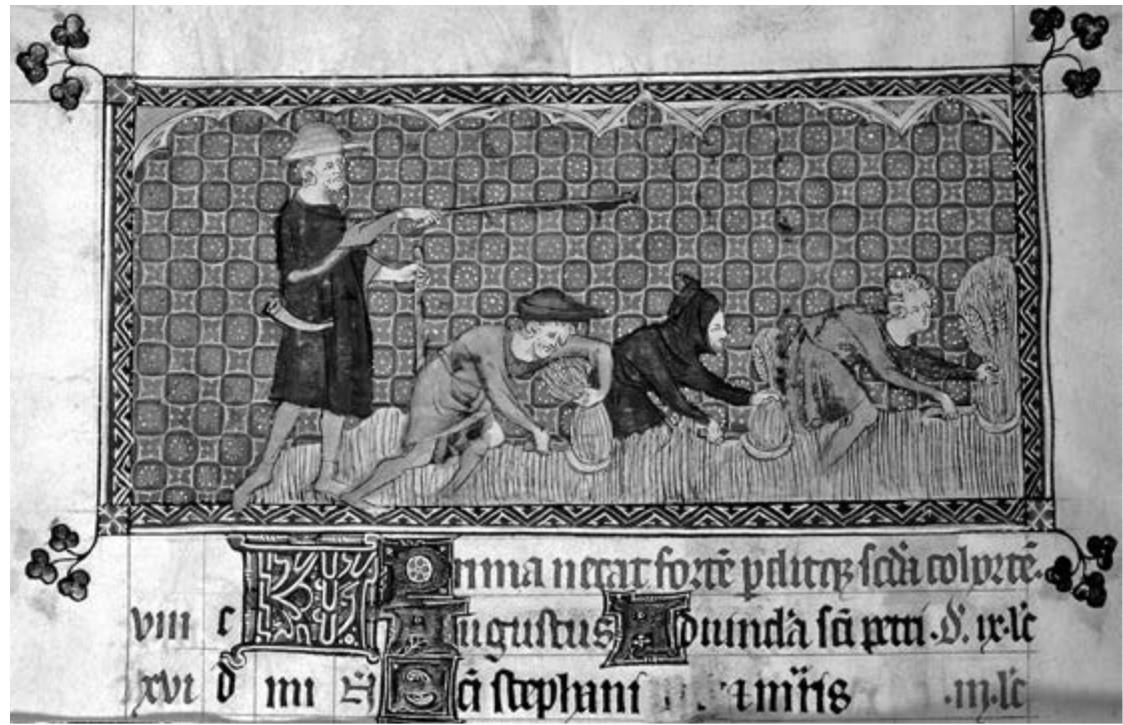 KL Prima necat fortē pditqꝫ scdā cohortē.
viii c Augustus Ad uincla sci petri .D. ix. lc
xvi d iiii N Sci stephani mris .iii. lc